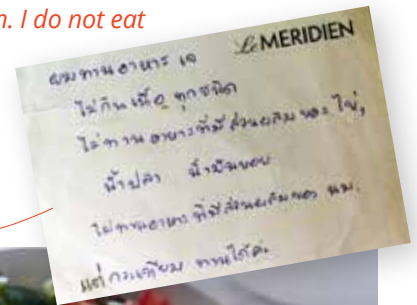 n. I do not eat
Le MERIDIEN
ผมทานอาหาร เจ
ไม่กินเนื้อ ทุกชนิด
ไม่ทานอาหารที่มีส่วนผสมของ ไข่,
น้ำปลา น้ำมันหอย
ไม่ทานอาหารที่มีส่วนผสมของ นม.
แต่ กระเทียม ทานได้ค่ะ